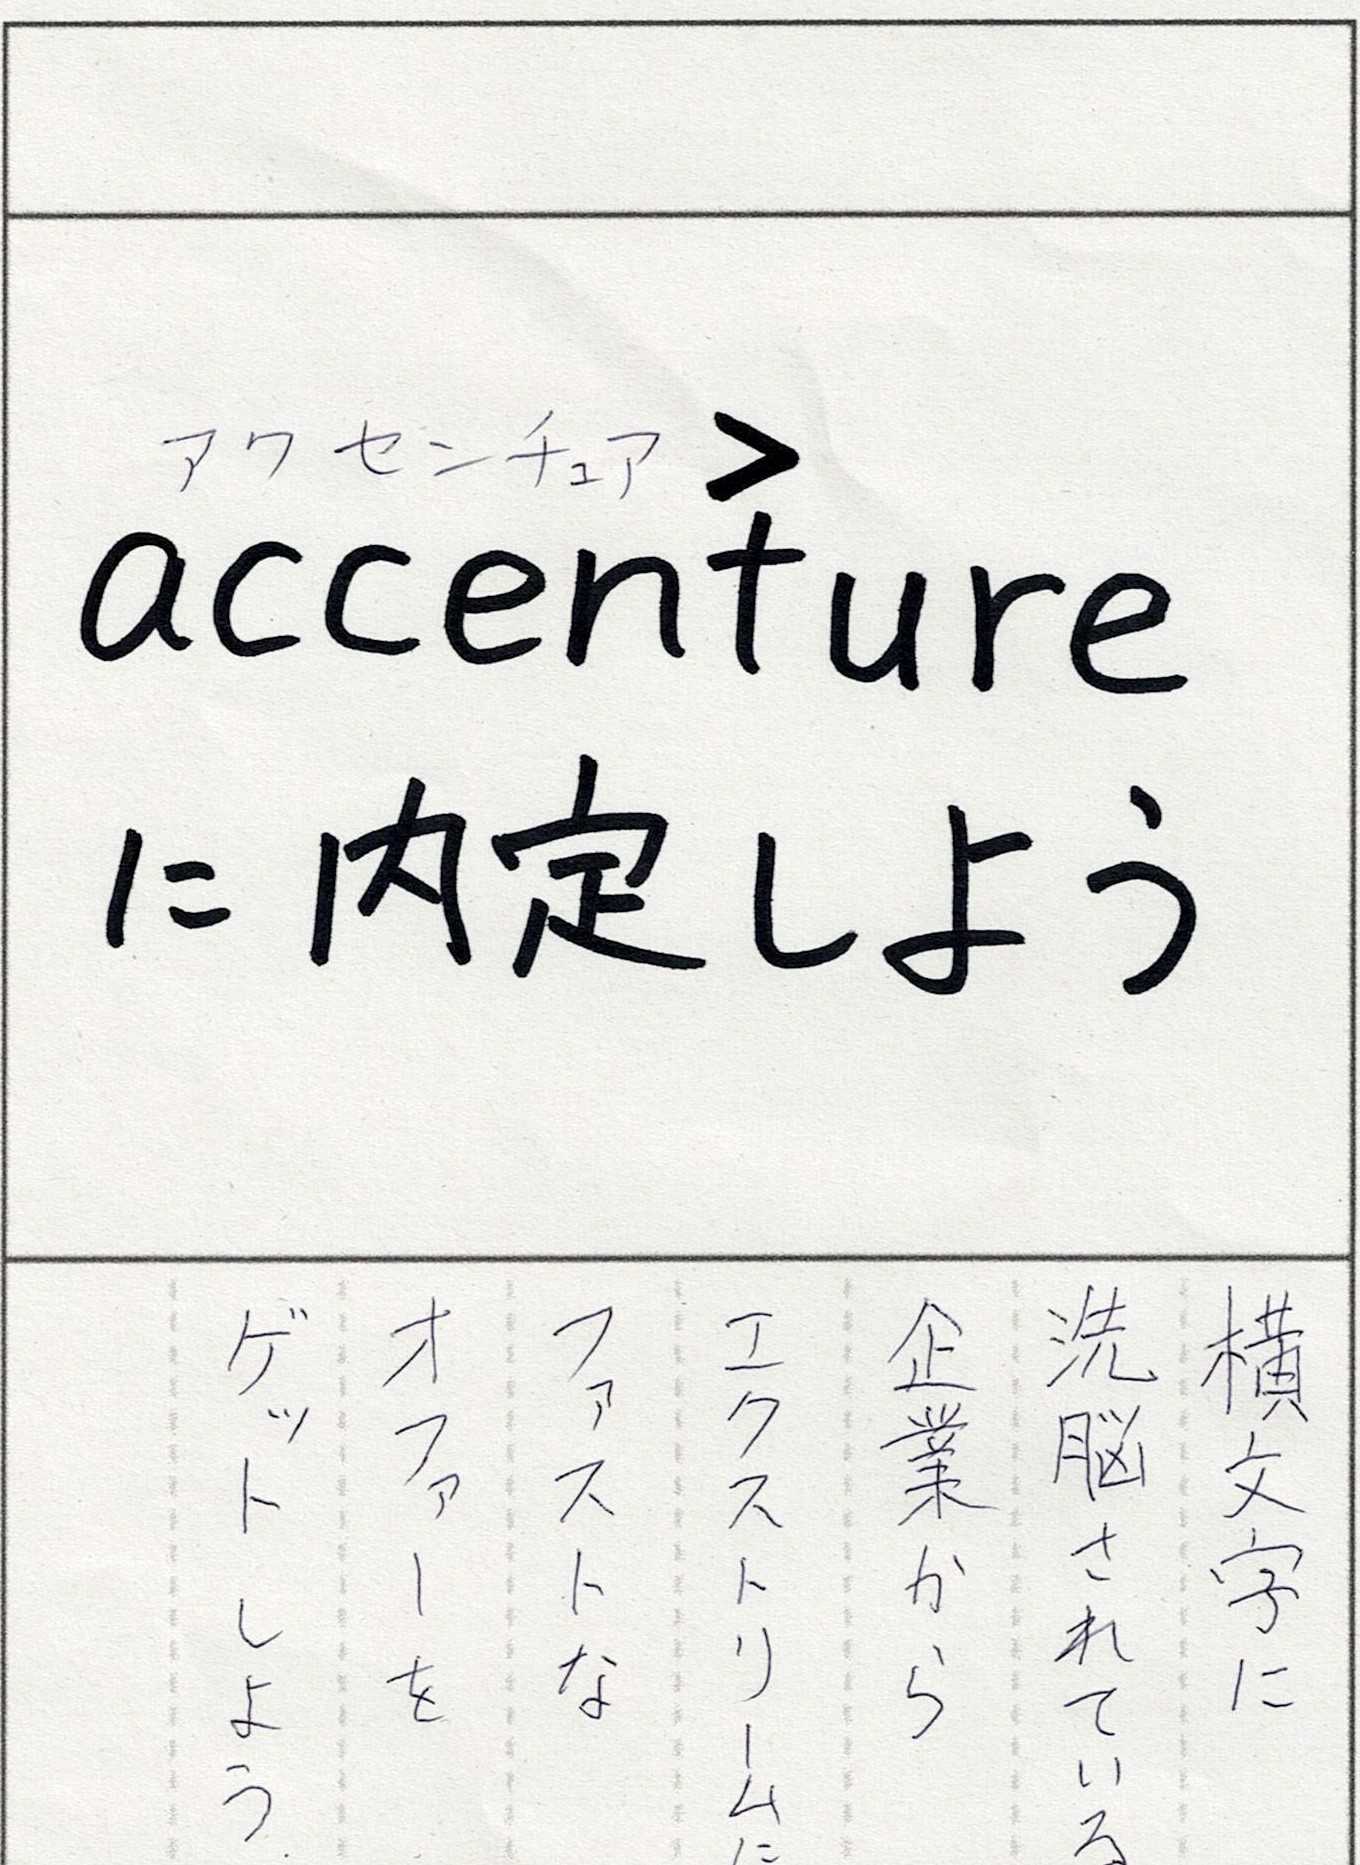 アクセンチュア
>
accenture
に内定しよう
横文字に
洗脳されている
企業から
エクストリームに
ファストな
オファーを
ゲットしよう.